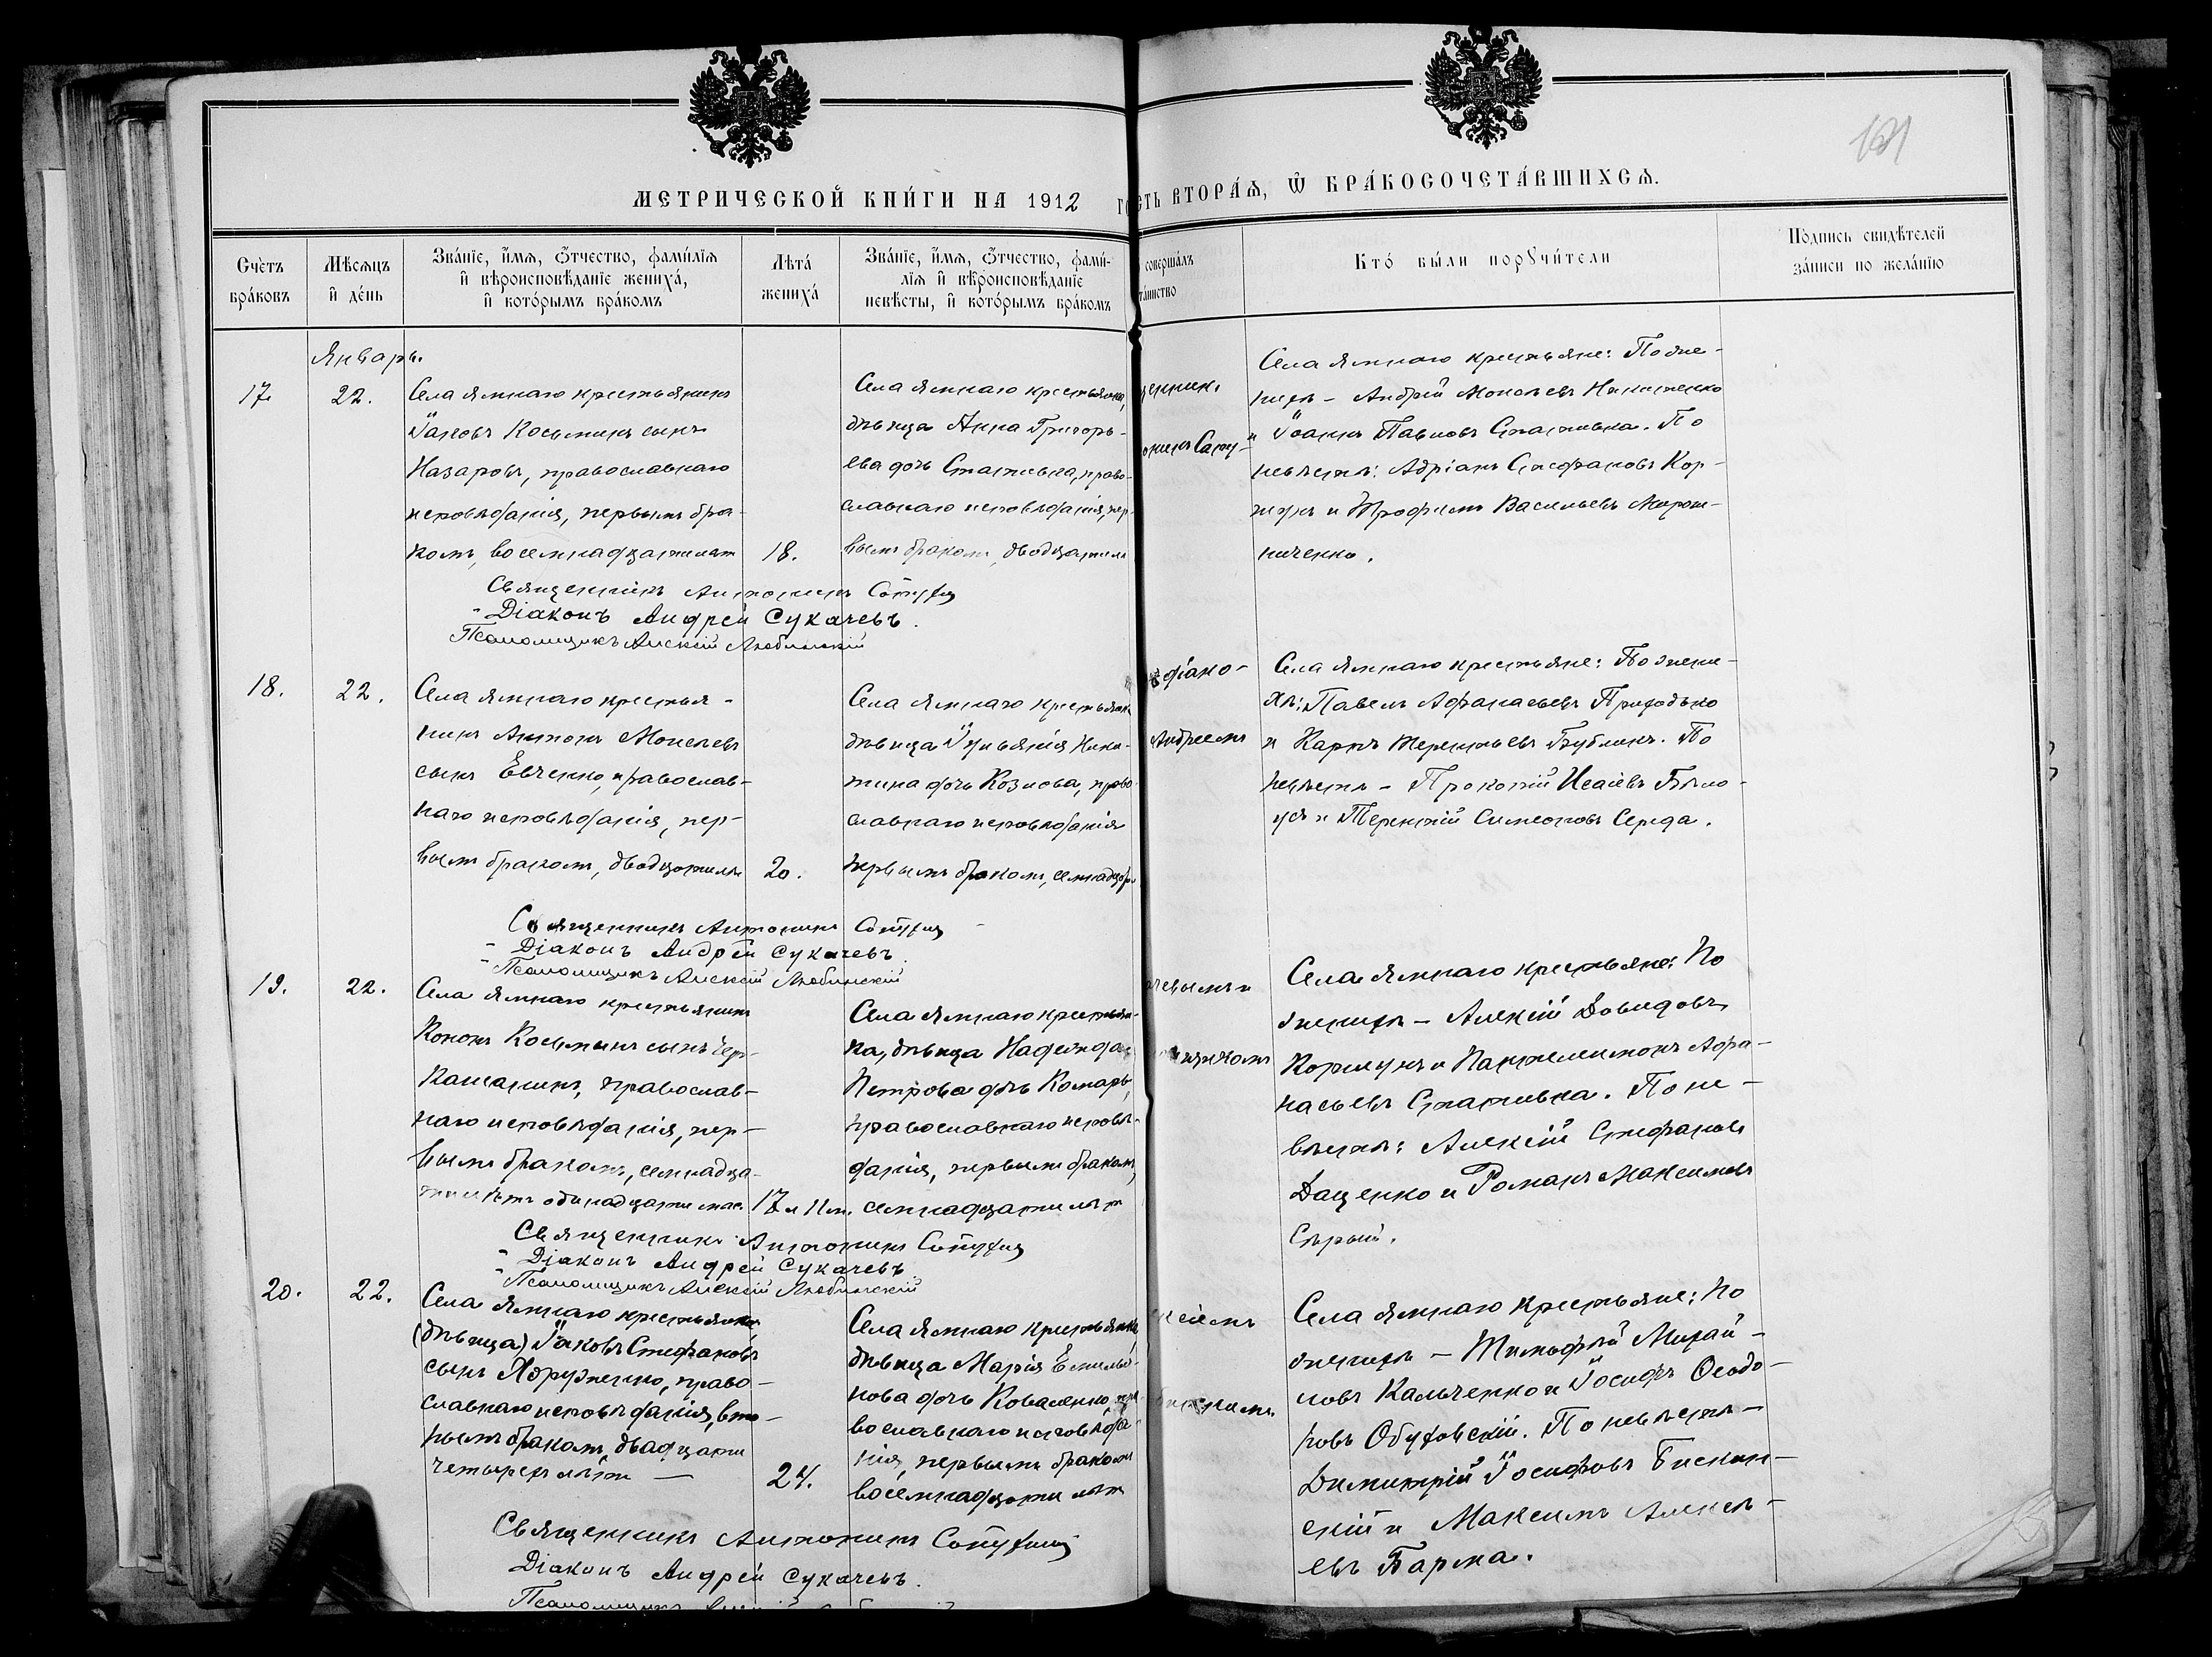 МЕТРИЧЕСКОЙ КНИ́ГИ НА 1912
СТЬ ВТОРА́Ѧ, Ѿ БРА́КОСОЧЕТА́ВШИХСѦ.
Счетъ браковъ
Мѣсяцъ и день
Званіе, имя, отчество, фамилія
и вѣроисповѣданіе жениха,
и которымъ бракомъ
Лѣта жениха
Званіе, имя, отчество, фами-
лія и вѣроисповѣданіе
невѣсты, и которымъ бракомъ
совершалъ
таинство
Кто были поручители
Подпись свидѣтелей
записи по желанію
Январь.
17.
22.
Села Ямнаго крестьянинъ
Іаковъ Косьминъ сынъ
Назаровъ, православнаго
исповѣданія, первымъ бра-
комъ, восемнадцати лѣт
18.
Села Ямнаго крестьянка,
дѣвица Анна Григорь-
ева дочь Стативка, право-
славнаго исповѣданія, пер-
вымъ бракомъ, двадцати
Села Ямнаго крестьяне: По же-
нихѣ - Андрей Моисеевъ Никитенко
и Іоаннъ Павловъ Стативка. По
невѣстѣ: Адріанъ Стефановъ Кор-
жунъ и Трофимъ Васильевъ Мирош-
ниченко.
Священникъ Антонинъ
Діаконъ Андрей Сукачевъ.
Псаломщикъ Алексій Любинскій
18.
22.
Села Ямнаго крестья-
нинъ Антонъ Моисеевъ
сынъ Евченко, православ-
наго исповѣданія, пер-
вымъ бракомъ, двадцати лѣт
20.
Села Ямнаго крестьянк
дѣвица Іуліанія Ники-
тина дочь Козлова, право-
славнаго исповѣданія
первымъ бракомъ, семнадцат
діако-
Андреемъ
Села Ямнаго крестьяне: По жени-
хѣ: Павелъ Афанасьевъ Приходько
и Карпъ Терентьевъ Бубликъ. По
невѣстѣ - Прокопій Исаіевъ Бѣло-
усъ и Терентій Симеоновъ Середа.
Священникъ Антонинъ
Діаконъ Андрей Сукачевъ.
Псаломщикъ Алексій Любинскій
19.
22.
Села Ямнаго крестьянинъ
Кононъ Косьминъ сынъ Чер-
кашанинъ, православ-
наго исповѣданія, пер-
вымъ бракомъ, семнадца-
ти лѣтъ одинадцати мѣс.
17 и 11 м.
Села Ямнаго крестьян-
ка, дѣвица Надежда
Петрова дочь Комаръ,
православнаго исповѣ-
данія, первымъ бракомъ,
семнадцати лѣт
Села Ямнаго крестьяне: По
женихѣ - Алексій Давидовъ
Коржунъ и Пантелеимонъ Афа-
насьевъ Стативка. По не-
вѣстѣ: Алексій Стефановъ
Даценко и Романъ Максимовъ
Сѣрый.
Священникъ Антонинъ
Діаконъ Андрей Сукачевъ
Псаломщикъ Алексій Любинскій
20.
22.
Села Ямнаго крестьянка
(дѣвица) Іаковъ Стефановъ
сынъ право-
славнаго исповѣданія, вто-
рымъ бракомъ, двадцати
четырехъ лѣтъ —
24.
Села Ямнаго крестьянка,
дѣвица Марія Емелья-
нова дочь Коваленко, пра
вославнаго исповѣда-
нія, первымъ бракомъ
восемнадцати лѣт
Села Ямнаго крестьяне: По
женихѣ - Тимофей Михай-
ловъ Кальченко и Іосифъ Феодо-
ровъ Обуховскій. По невѣстѣ -
Димитрій Іосифовъ Пискун-
скій и Максимъ Алексѣ-
евъ Барма.
Священникъ Антонинъ
Діаконъ Андрей Сукачевъ.